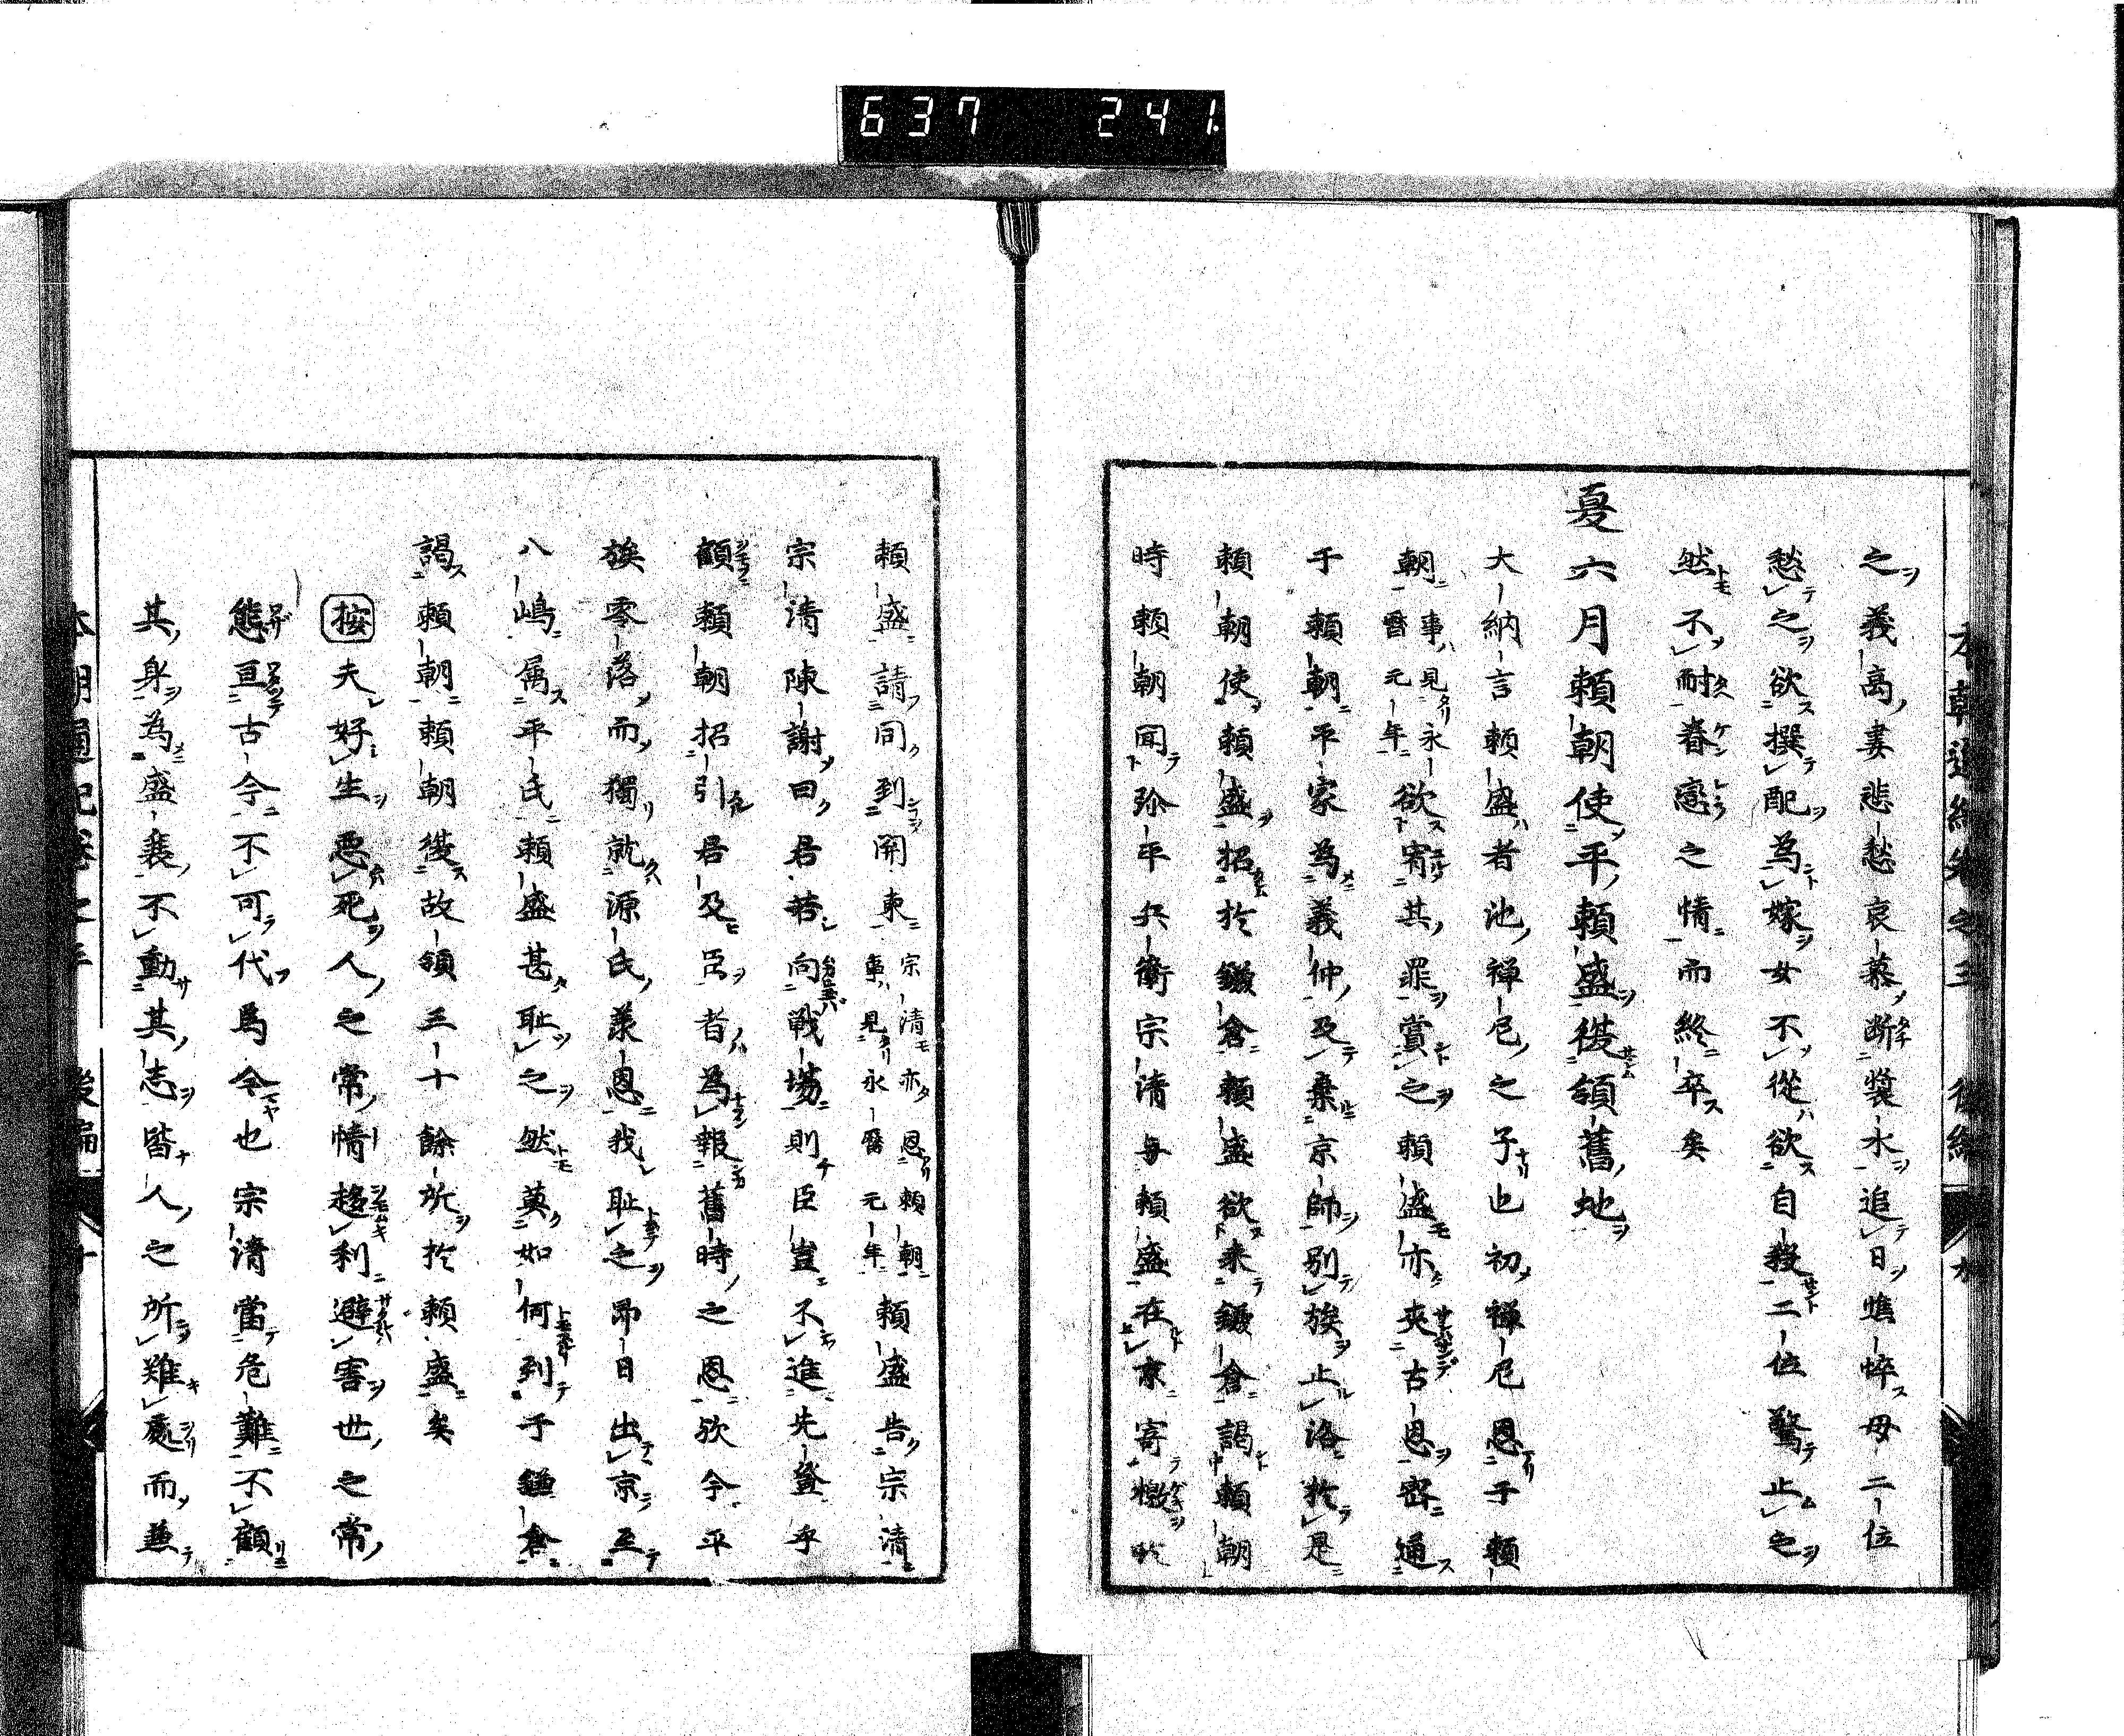 637 241
之義高妻悲愁哀慕断漿水追日憔悴母二位
愁之欲撰配為嫁女不從欲自殺二位驚止之
然不耐眷戀之情而終卒矣
夏六月頼朝使平頼盛復領舊地
大納言頼盛者池禅尼之子也初禅尼恩于頼
朝事見永暦元年欲宥其罪賞之頼盛亦夾古恩密通
于頼朝平家為義仲及棄京師別族止洛於是
頼朝使頼盛招於鎌倉頼盛欲来鎌倉謁頼朝
時頼朝聞弥平兵衛宗清毎頼盛在京寄檄於
頼盛請同到関東宗清亦恩頼朝事見永暦元年頼盛告宗清
宗清陳謝曰君若向戦場則臣豈不進先登乎
顧頼朝招引君及臣者為報舊時之恩欤今平
族零落而獨就源氏羨恩我耻之昂日出京至
八嶋属平氏頼盛甚耻之然莫如何到于鎌倉
謁頼朝頼朝復故領三十餘所於頼盛矣
按夫好生悪死人之常情趍利避害世之常
態亘古今不可代為今也宗清當危難不顧
其身為盛衰不動其志皆人之所難處而兼